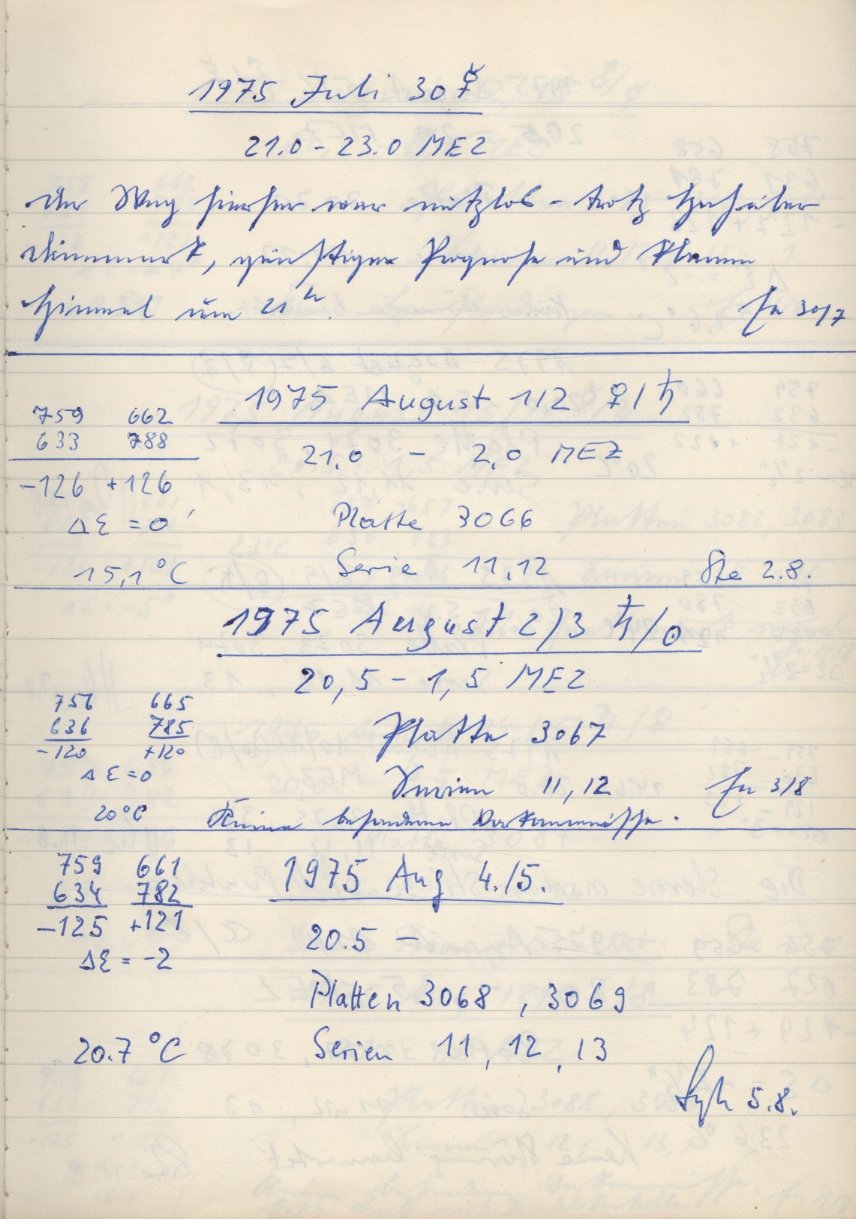 1975 Juli 30 ☿
21.0 - 23.0 MEZ
Der Weg hierher war nutzlos - trotz
günstiger Prognose und klarem
Himmel um 21ʰ. 30/7
1975 August 1/2 ♀/♄
759 662
633 788
-126 +126
ΔƐ = 0'
15,1°C
21.0 - 2,0 MEZ
Platte 3066
Serie 11,12 Ste 2.8.
1975 August 2/3 ♄/⊙
20,5 - 1,5 MEZ
756 665
636 785
-120 +120
ΔƐ=0
20°C
Platte 3067
Serien 11,12 3/8
Keine besonderen Vorkommnisse.
1975 Aug 4./5.
759 661
634 782
-125 +121
ΔƐ = -2
20.7 °C
20.5 -
Platten 3068, 3069
Serien 11, 12, 13
5.8.